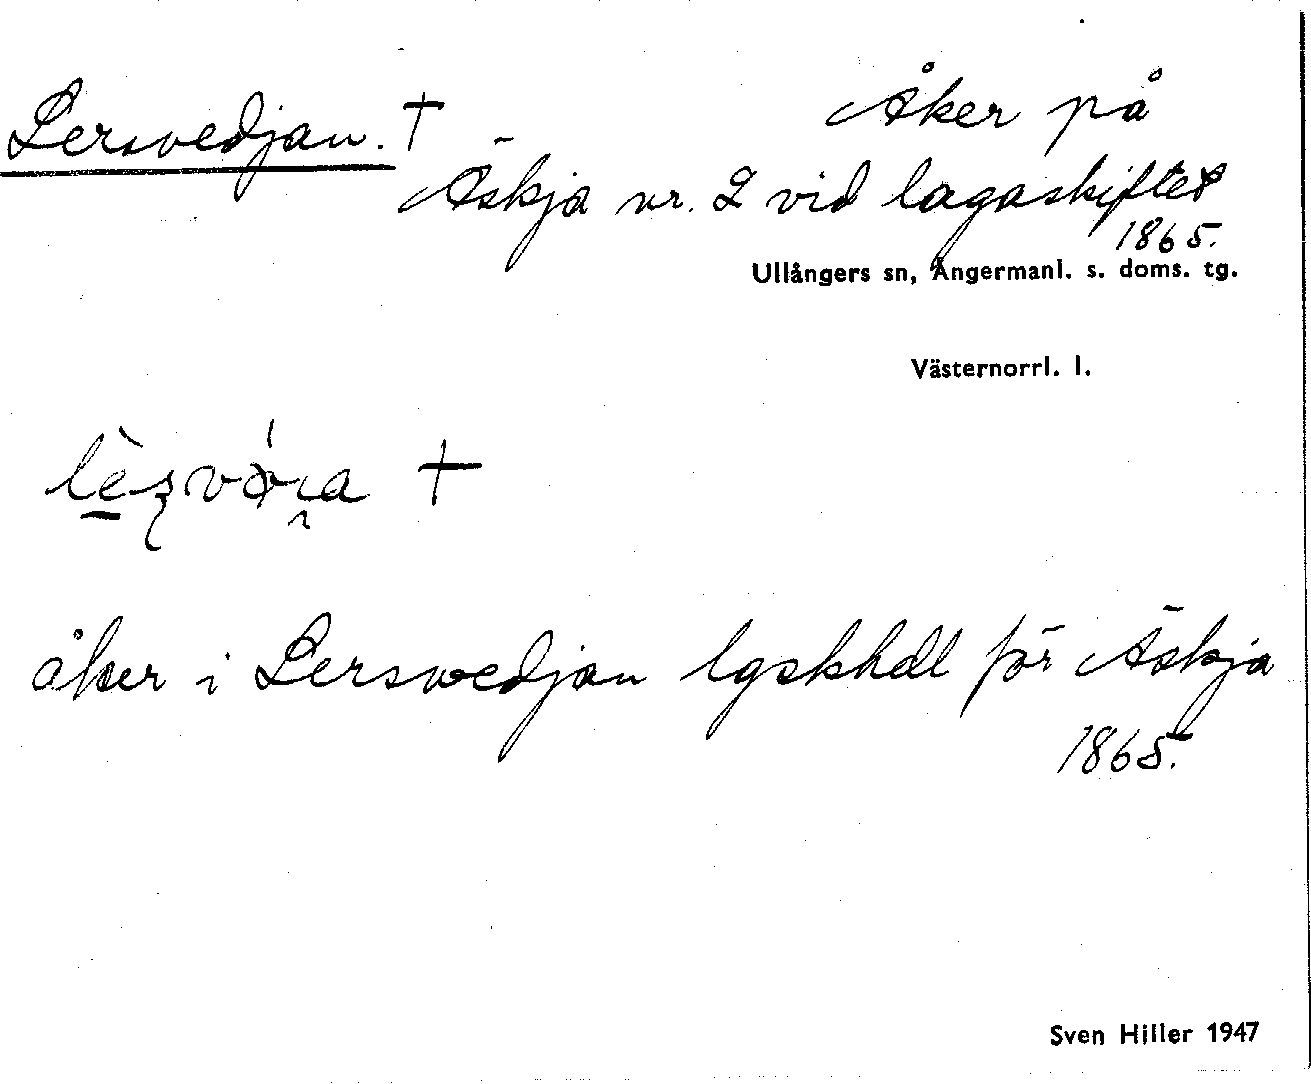 Lersvedjan. † Åker på
Äskja nr. 2 vid lagaskiftet
1865.
Ullångers sn, Ångermanl. s. doms. tg.
Västernorrl. l.
†
åker i Lersvedjan lgskhdl för Äskja
1865.
Sven Hiller 1947